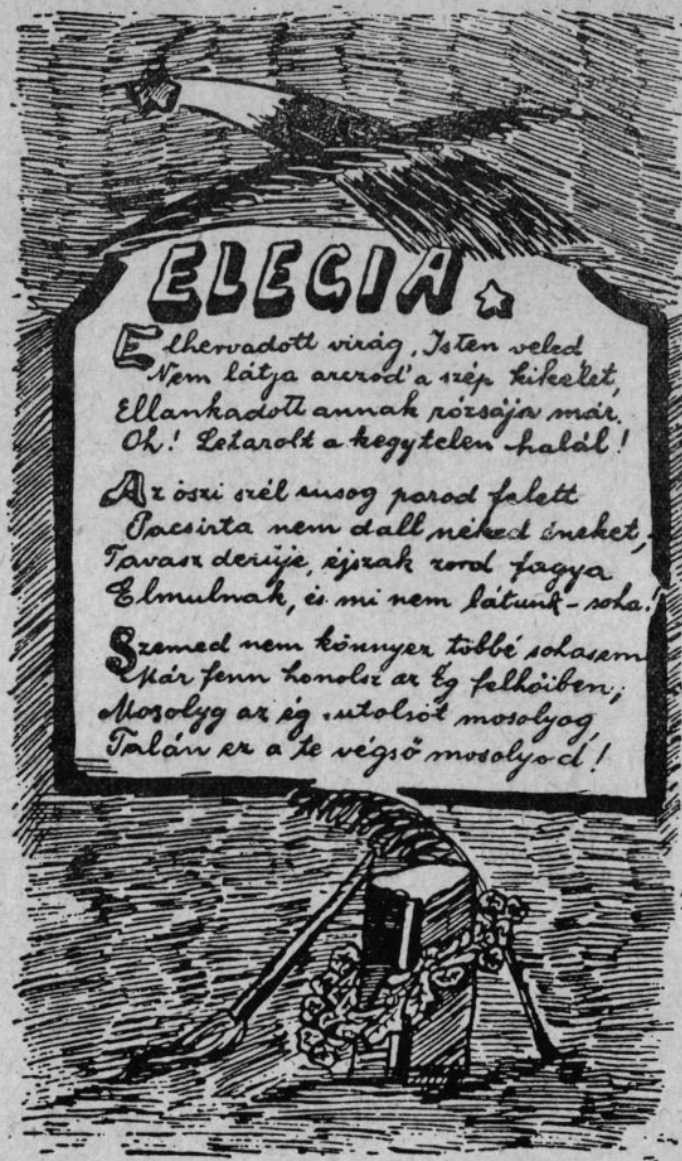 ELEGIA.
Elhervadott virág, Isten veled
Nem látja arczod' a szép kikelet,
Ellankadott annak rózsája már.
Oh! Letarolt a kegytelen halál!
Az öszi szél susog porod felett
Pacsirta nem dall néked éneket,
Tavasz derüje, éjszak zord fagya
Elmulnak, és mi nem látunk - soha!
Szemed nem könnyez többé sohasem
Már fenn honolsz az Ég felhőiben;
Mosolyg az ég, utolsót mosolyog,
Talán ez a te végső mosolyod!